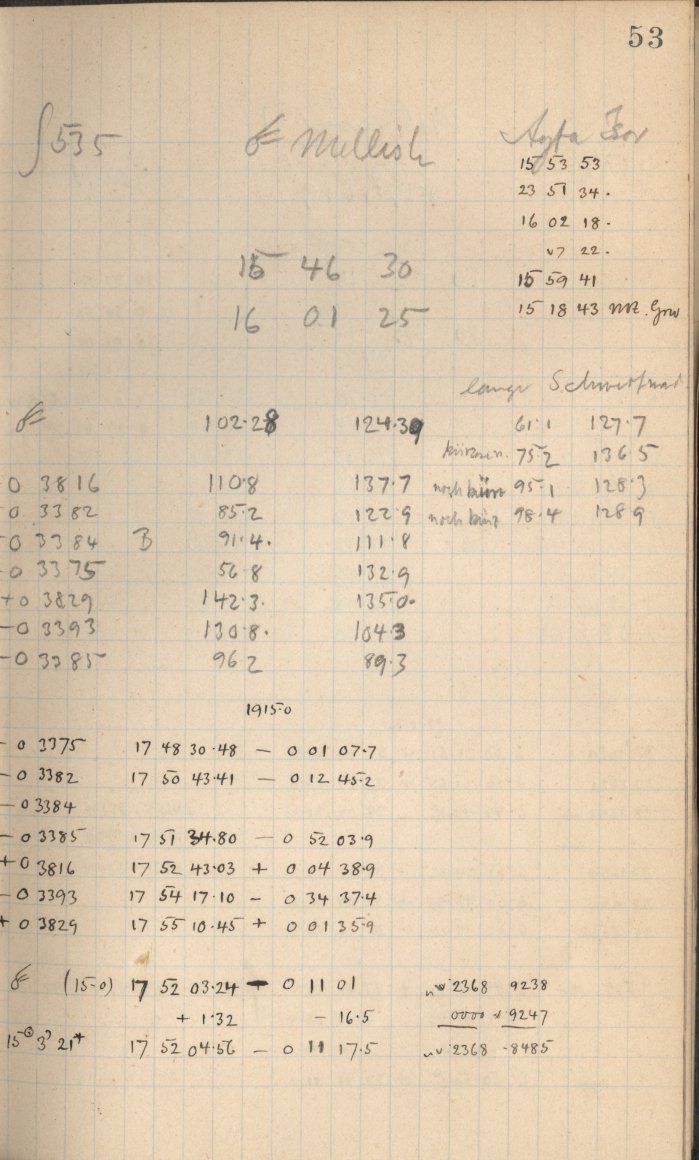 53
∫535 Mellish Agfa Isor
15 53 53
23 51 34.
16 02 18.
v7 22.
15 46 30
15 59 41
16 01 25
15 18 43
lange Schweifung
102.28 124.39 61.1 127.7
75.2 136.5
-0 3816 110.8 137.7 noch kürz 95.1 128.3
-0 3382 85.2 122.9 noch kürz 98.4 128.9
-0 3384 B 91.4. 111.8
-0 3375 56.8 132.9
+0 3829 142.3. 135.0.
-0 3393 130.8. 104.3
-0 3385 96.2 89.3
1915.0
-0 3375 17 48 30.48 - 0 01 07.7
-0 3382 17 50 43.41 - 0 12 45.2
-0 3384
-0 3385 17 51 34.80 - 0 52 03.9
+0 3816 17 52 43.03 + 0 04 38.9
-0 3393 17 54 17.10 - 0 34 37.4
+0 3829 17 55 10.45 + 0 01 35.9
(15.0) 17 52 03.24 - 0 11 01 2368 9238
+ 1.32 - 16.5 0000 9247
15 3 21 17 52 04.56 - 0 11 17.5 2368 -8485